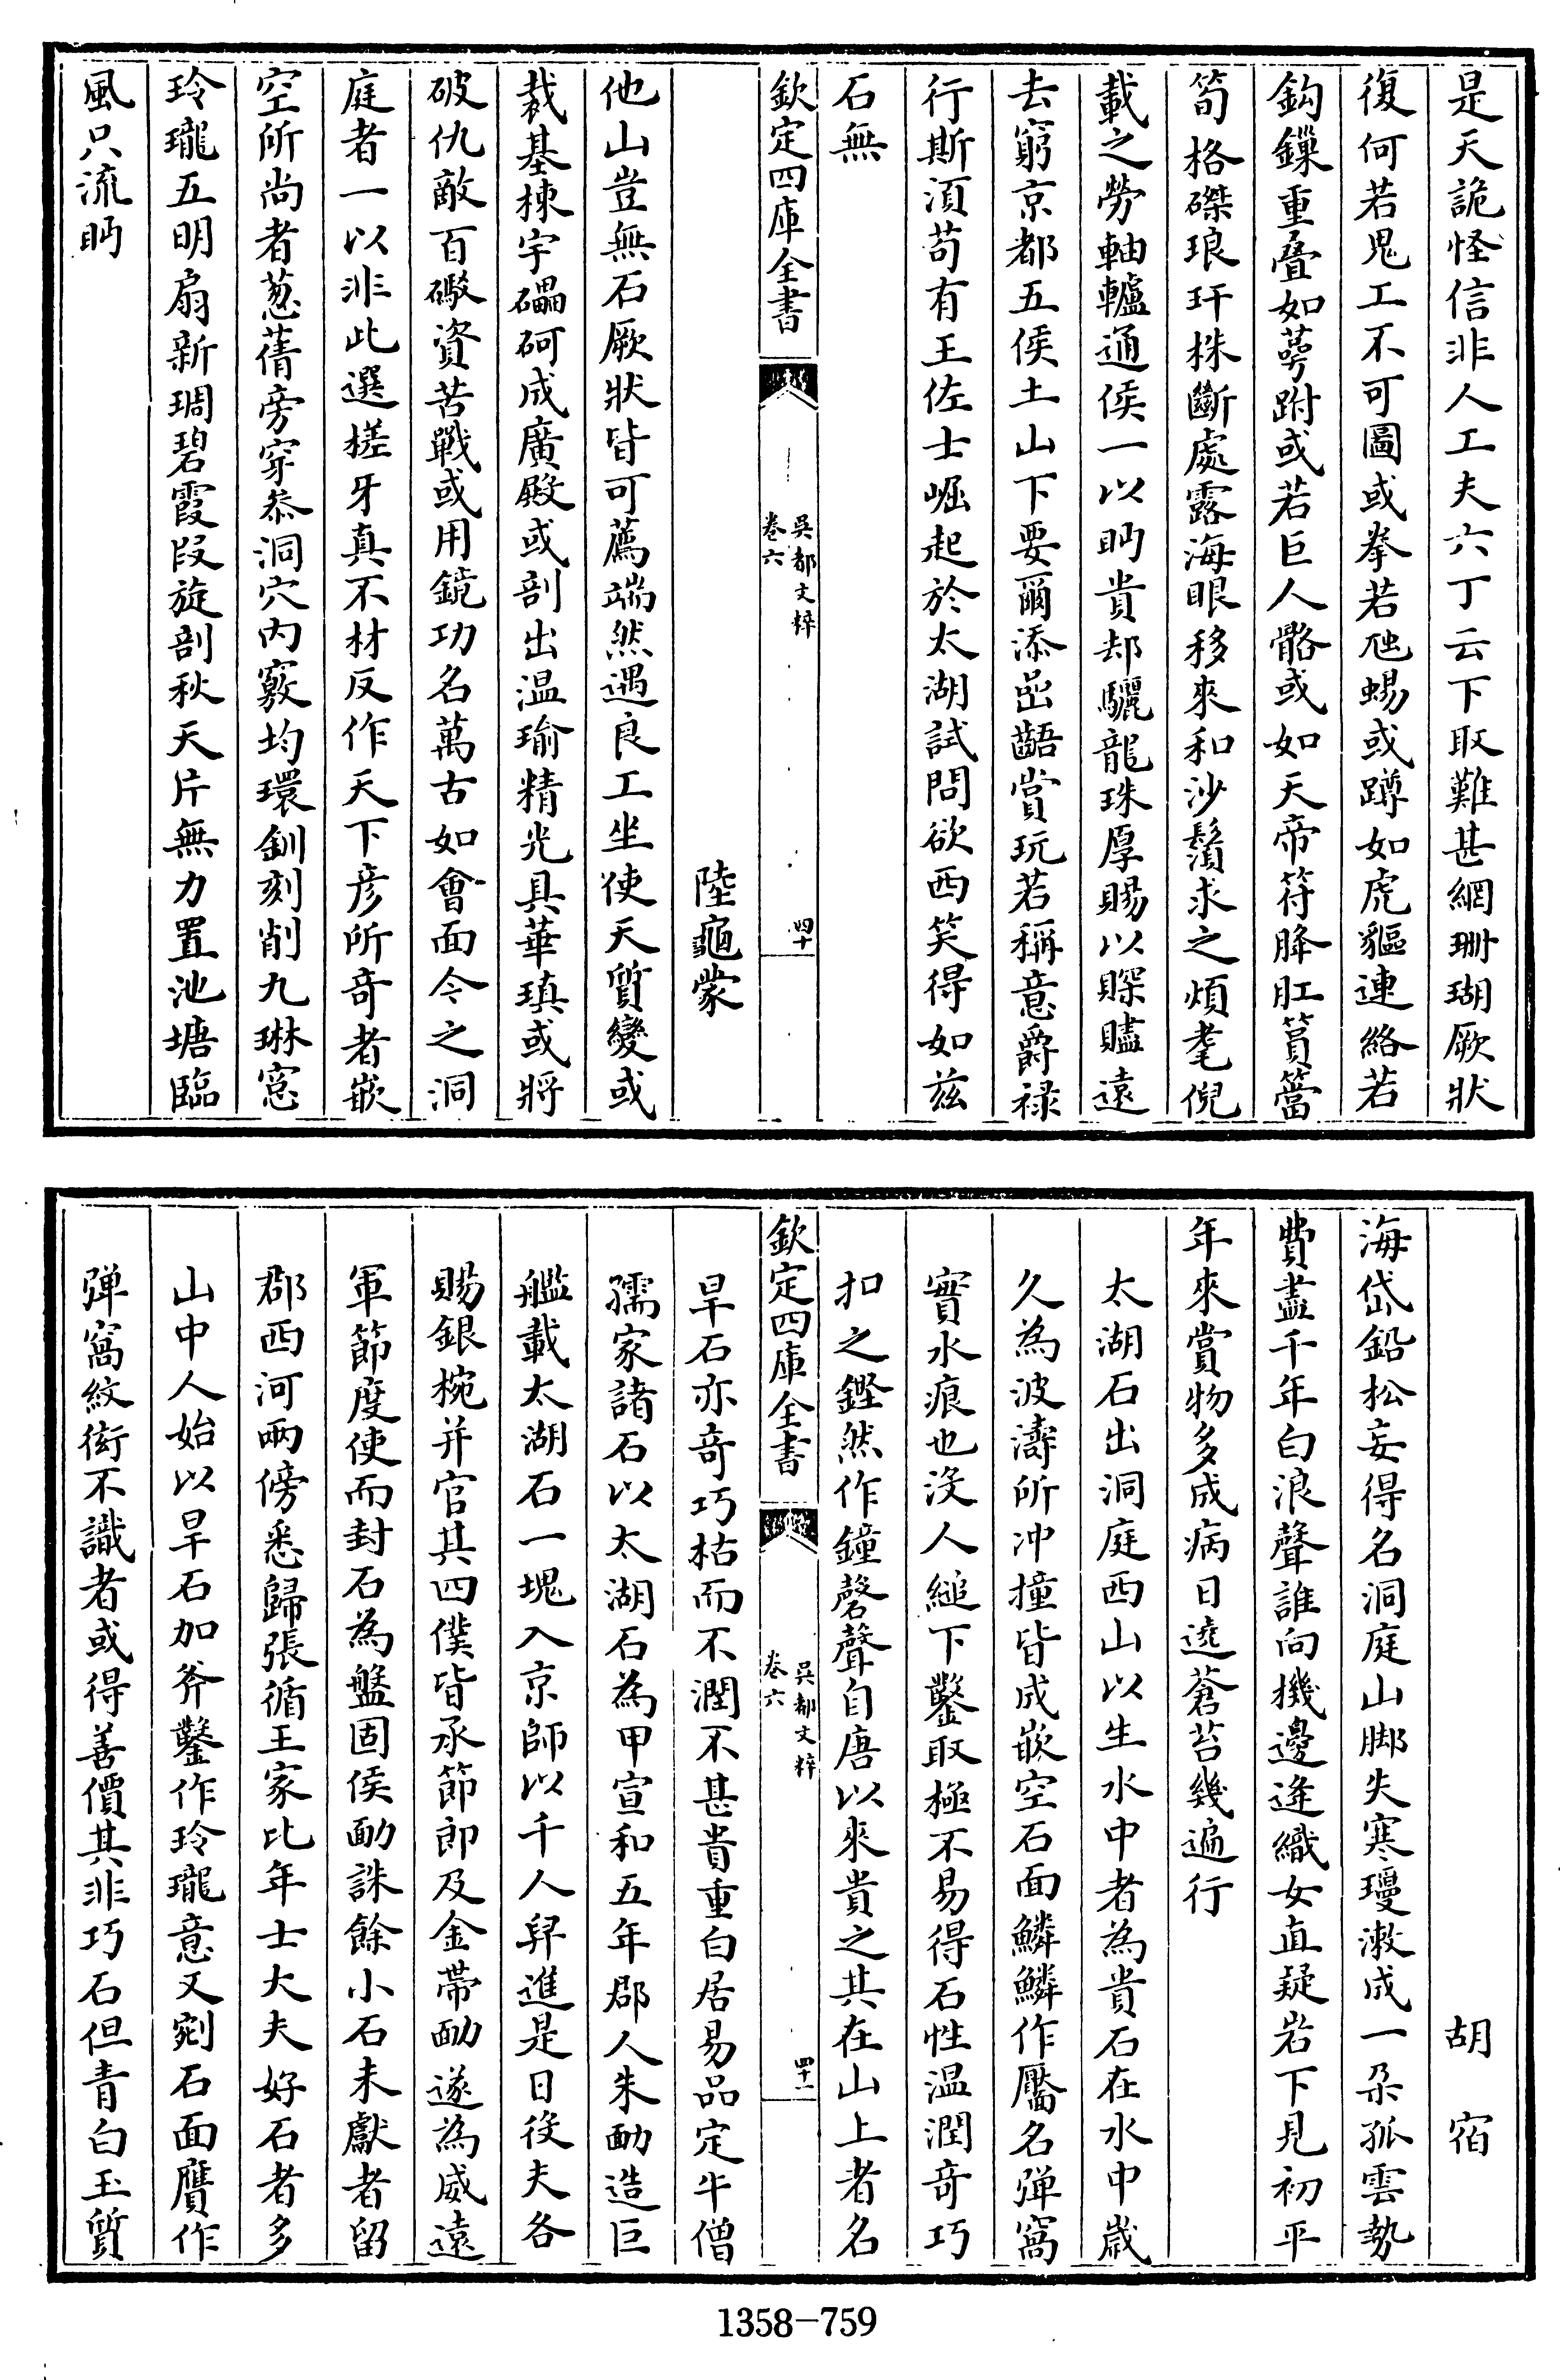 是天詭怪信非人工夫六丁云下取難甚網珊瑚厥狀
復何若鬼工不可圖或拳若虺蜴或蹲如虎貙連絡若
鈎鏁重疊如萼跗或若巨人骼或如天帝符胮肛篔簹
筍格磔琅玕株斷處露海眼移來和沙鬚求之煩耄倪
載之勞軸轤通侯一以眄貴却驪龍珠厚賜以賝贐遠
去窮京都五侯土山下要爾添嵒齬賞玩若稱意爵禄
行斯湏苟有王佐士崛起於太湖試問欲西笑得如兹
石無
欽定四庫全書
吳都文粹
卷六
四十
陸龜蒙
他山豈無石厥狀皆可薦端然遇良工坐使天質變或
裁基棟宇礧砢成廣殿或剖出温瑜精光具華瑱或將
破仇敵百礮資苦戰或用鏡功名萬古如會面今之洞
庭者一以非此選槎牙真不材反作天下彦所奇者嵌
空所尚者葱蒨旁穿叅洞穴内竅均環釧刻削九琳窻
玲瓏五明扇新琱碧霞段旋剖秋天片無力置池塘臨
風只流眄
胡宿
海岱鉛松妄得名洞庭山脚失寒瓊漱成一朶孤雲勢
費盡千年白浪聲誰向機邊逄織女直疑岩下見初平
年來賞物多成病日遶蒼苔幾遍行
太湖石出洞庭西山以生水中者為貴石在水中歲
久為波濤所冲撞皆成嵌空石面鱗鱗作靨名彈窩
實水痕也没人縋下鑿取極不易得石性温潤奇巧
扣之鏗然作鐘磬聲自唐以來貴之其在山上者名
欽定四庫全書
吳都文粹
卷六
四十一
旱石亦奇巧枯而不潤不甚貴重白居易品定牛僧
孺家諸石以太湖石為甲宣和五年郡人朱勔造巨
艦載太湖石一塊入京師以千人舁進是日役夫各
賜銀椀并官其四僕皆承節郎及金帶勔遂為威遠
軍節度使而封石為盤固侯勔誅餘小石未獻者留
郡西河兩傍悉歸張循王家比年士大夫好石者多
山中人始以旱石加斧鑿作玲瓏意又剜石面贋作
彈窩紋衒不識者或得善價其非巧石但青白玉質
1358-759